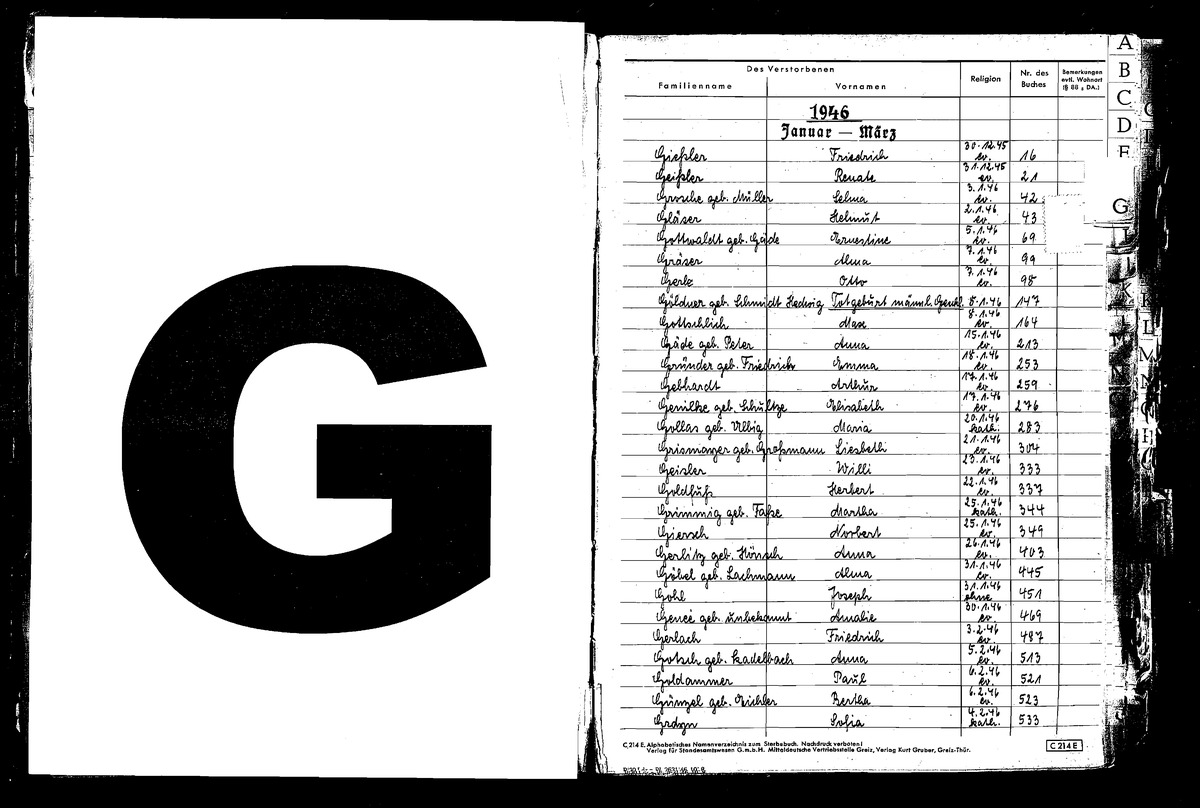 G
Des Verstorbenen
Familienname Vornamen Religion Nr. des Buches Bemerkungen evtl. Wohnort (§ 88 , DA.)
1946
Januar — März
Gießler Friedrich 30.12.45 ev. 16
Geißler Renate 31.12.45 ev. 21
Grosche geb. Müller Selma 3.1.46 ev. 42
Gläser Helmut 2.1.46 ev. 43
Gottwaldt geb. Gäde Ernestine 5.1.46 ev. 69
Gräser Alma 7.1.46 ev. 99
Gerls Otto 7.1.46 ev. 98
Göldner geb. Schmidt Hedwig Totgeburt männl. Geschl. 8.1.46 147
Gottschlich Max 8.1.46 ev. 164
Gäde geb. Peter Anna 15.1.46 ev. 213
Gründer geb. Friedrich Emma 18.1.46 ev. 253
Gebhardt Arthur 17.1.46 ev. 259
geb. Schultze Elisabeth 17.1.46 ev. 276
Gollas geb. Ulbig Maria 20.1.46 kath. 283
Grismayer geb. Großmann Liesbeth 21.1.46 ev. 304
Geisler Willi 23.1.46 ev. 333
Goldfuß Herbert 22.1.46 ev. 337
Grimmig geb. Faße Martha 25.1.46 kath. 344
Giersch Norbert 25.1.46 ev. 349
Gerlitz geb. Hönsch Anna 26.1.46 ev. 403
Göbel geb. Lachmann Alma 31.1.46 ev. 445
Gohl Joseph 31.1.46 ohne 451
Geneé geb. unbekannt Amalie 30.1.46 ev 469
Gerlach Friedrich 3.2.46 ev. 487
Gotsch geb. Kadelbach Anna 5.2.46 ev. 513
Goldammer Paul 6.2.46 ev. 521
Günzel geb. Bertha 6.2.46 ev. 523
Grdyn Sofia 4.2.46 kath. 533
C 214 E. Alphabetisches Namenverzeichnis zum Sterbebuch. Nachdruck verboten!
Verlag für Standesamtswesen G.m.b.H. Mitteldeutsche Vertriebsstelle Greiz, Verlag Kurt Gruber, Greiz-Thür.
C 214 E
A
B
C
D
E
G
K